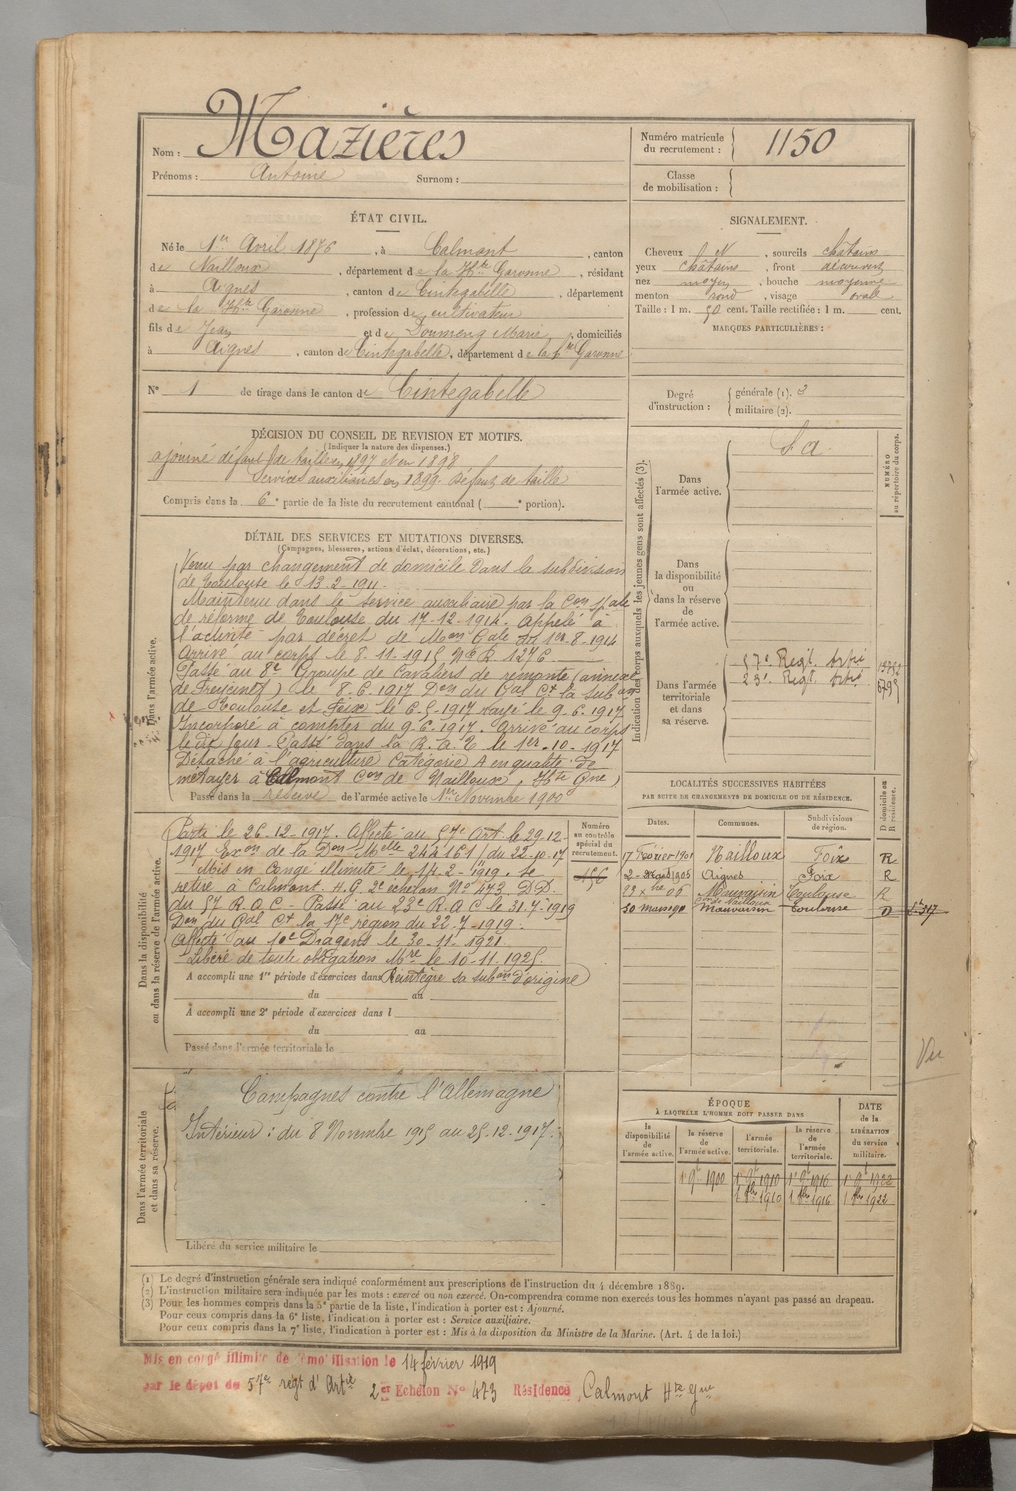 Nom : Mazières
Prénoms : Antoine Surnom :
Numéro matricule du recrutement : 1150
Classe de mobilisation :
ÉTAT CIVIL.
Né le 1er Avril 1876, à Calmont, canton
de Nailloux, département de la Hte Garonne, résidant
à Aignes, canton de Cintegabelle, département
de la Hte Garonne, profession de cultivateur
fils de Jean et de Doumeng Marie, domiciliés
à Aignes, canton de Cintegabelle, département de la Hte Garonne
N° 1 de tirage dans le canton de Cintegabelle
SIGNALEMENT.
Cheveux N, sourcils châtains
yeux châtains, front découvert
nez moyen, bouche moyenne
menton rond, visage ovale
Taille : 1 m. 50 cent. Taille rectifiée : 1 m. cent.
MARQUES PARTICULIÈRES :
Degré d'instruction : générale (1). 3
militaire (2).
DÉCISION DU CONSEIL DE REVISION ET MOTIFS.
(Indiquer la nature des dispenses.)
ajourné défaut de taille en 1897 et en 1898
Services auxiliaires en 1899. Défaut de taille
Compris dans la 6e partie de la liste du recrutement cantonal ( e portion).
DÉTAIL DES SERVICES ET MUTATIONS DIVERSES.
(Campagnes, blessures, actions d'éclat, décorations, etc.)
Dans l'armée active.
Venu par changement de domicile dans la subdivision
de Toulouse le 13.2.1911.
Maintenu dans le service auxiliaire par la Con spale
de réforme de Toulouse du 17-12-1914. Appelé à
l'activité par décret de Mon Gale du 1er.8.1914
Arrivé au corps le 8.11.1915 No R. 1276
Passé au 8e Groupe de Cavaliers de remonte (annexe
de Freicinet) le 8.6.1917 Don du Gal Ct la subon
de Toulouse et Foix le 6.5.1917 rayé le 9.6.1917
Incorporé à compter du 9.6.1917. Arrivé au corps
le dit jour. Passé dans la R.A.T. le 1er-10-1917
Détaché à l'agriculture Catégorie A en qualité de
métayer à Calmont Con de Nailloux, Hte Gne)
Passé dans la réserve de l'armée active le 1er Novembre 1900
Indication des corps auxquels les jeunes gens sont affectés (3).
NUMÉRO au répertoire du corps.
Dans l'armée active. S a
Dans la disponibilité ou dans la réserve de l'armée active.
Dans l'armée territoriale et dans sa réserve.
57e Regt. Artie
23e Regt. Artie
LOCALITÉS SUCCESSIVES HABITÉES
PAR SUITE DE CHANGEMENTS DE DOMICILE OU DE RÉSIDENCE.
Dates. Communes. Subdivisions de région. D domicile ou R résidence.
17 Février 1901 Nailloux Foix R
2 Mars 1905 Aignes Foix R
22 Xbre 06 Mauvaisin Toulouse R
30 mars 1911 Mauvaisin Toulouse D
Con de Nailloux
Dans la disponibilité ou dans la réserve de l'armée active.
Numéro au contrôle spécial du recrutement.
156
Parti le 26-12-1917. Affecté au 57e Art. le 29-12-
1917 Exon de la Don Melle 244161/ du 22-10-17
Mis en Congé illimité le 14-2-1919. Se
retire à Calmont. H.G. 2e échelon No 473 D.D.
du 57 R.A.C. Passé au 23e R.A.C le 31.7.1919
Don du Gal Ct la 17e région du 22.7.1919.
Affecté au 10e Dragons le 30.11.1921
Libéré de toute obligation Mre le 10.11.1925
A accompli une 1re période d'exercices dans Réintègre sa subon d'origine)
du au
A accompli une 2e période d'exercices dans l
du au
Passé dans l'armée territoriale le
Dans l'armée territoriale et dans sa réserve.
Campagnes contre l'Allemagne
Intérieur : du 8 Novembre 1915 au 25-12-1917.
Libéré du service militaire le
ÉPOQUE
À LAQUELLE L'HOMME DOIT PASSER DANS
la disponibilité de l'armée active. la réserve de l'armée active. l'armée territoriale. la réserve de l'armée territoriale.
DATE de la LIBÉRATION du service militaire.
1900 1910 1916 1922
1910 1916 1922
Vu
(1) Le degré d'instruction générale sera indiqué conformément aux prescriptions de l'instruction du 4 décembre 1889.
(2) L'instruction militaire sera indiquée par les mots : exercé ou non exercé. On comprendra comme non exercés tous les hommes n'ayant pas passé au drapeau.
(3) Pour les hommes compris dans la 5e partie de la liste, l'indication à porter est : Ajourné.
Pour ceux compris dans la 6e liste, l'indication à porter est : Service auxiliaire.
Pour ceux compris dans la 7e liste, l'indication à porter est : Mis à la disposition du Ministre de la Marine. (Art. 4 de la loi.)
Mis en congé illimité de démobilisation le 14 février 1919
par le dépôt du 57e régt d'Artie 2e Echelon No 473 Résidence Calmont Hte Gne